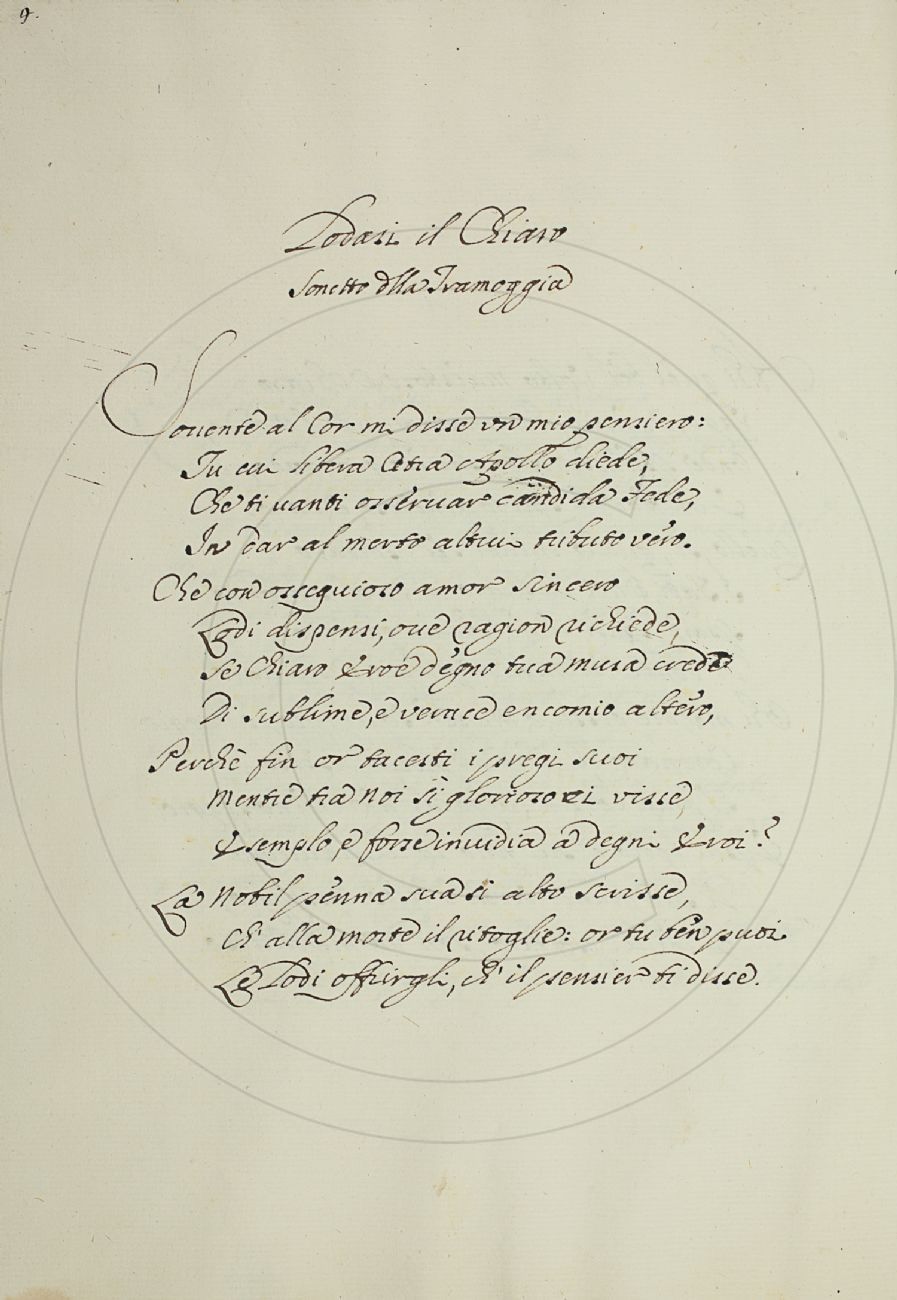 9.
Lodasi il Chiaro
Sonetto della Tramoggia
Souente al Cor mi disse un mio pensiero:
Tu cui libera Cetra Apollo diede,
Che ti uanti osseruar candida Fede,
In dar al merto altrui tributo vero.
Che con ossequioso amor sincero
Lodi dispensi, oue ragion richiede,
Se Chiaro Eroe degno tua musa crede
Di sublime, e verace encomio altero,
Perchè fin or tacesti i pregi suoi
Mentre tra noi sì glorioso ei visse
Esemplo, e forse inuidia a degni Eroi?
La Nobil penna sua sì alto scrisse,
Ch' alla morte il ritoglie: or tu ben puoi
Le Lodi offrirgli, ch' il pensier ti disse.